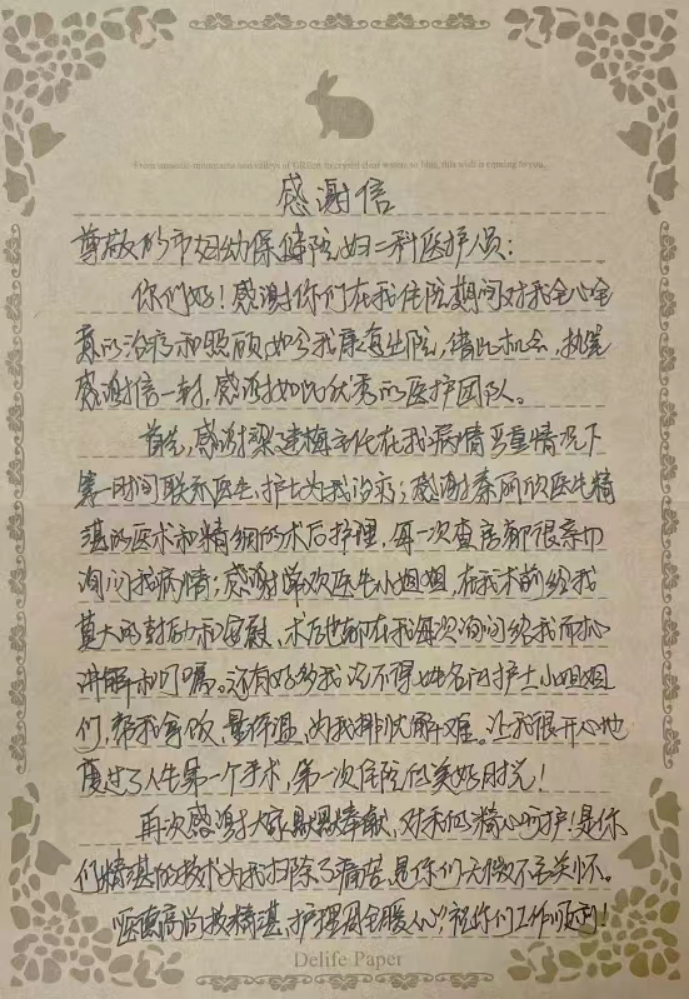 感谢信
尊敬的市妇幼保健院妇二科医护人员：
你们好！感谢你们在我住院期间对我全心全
意的治疗和照顾，如今我康复出院，借此机会，执笔
感谢信一封，感谢如此优秀的医护团队。
首先，感谢梁建梅主任在我病情严重情况下
第一时间联系医生、护士为我治疗；感谢秦丽欣医生精
湛的医术和精细的术后护理，每一次查房都很亲切
询问我病情；感谢单欢医生小姐姐，在我术前给我
莫大的鼓励和安慰，术后也都在我每次询问给我耐心
讲解和叮嘱。还有好多我记不得姓名的护士小姐姐
们，帮我拿饭，量体温，为我排忧解难。让我很开心地
度过了人生第一个手术，第一次住院的美好时光！
再次感谢大家默默奉献，对我的精心呵护！是你
们精湛的技术为我扫除了痛苦，是你们无微不至关怀。
“医德高尚技精湛，护理周全暖人心”，祝你们工作顺利！
Delife Paper